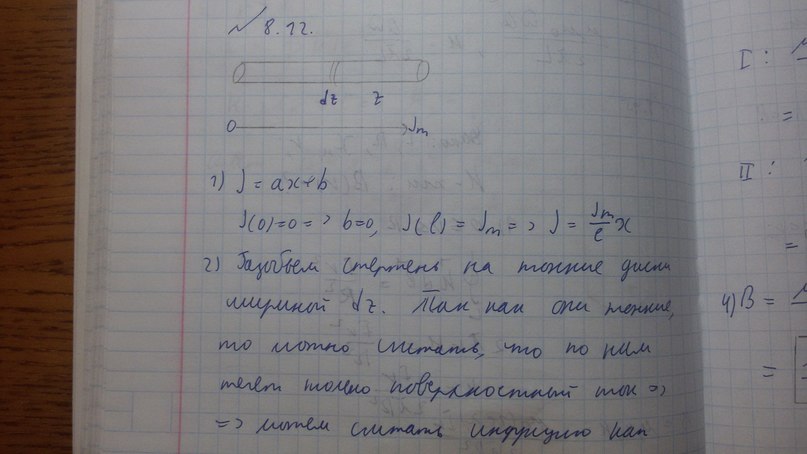 √ 8.12.
dz z
0 Jm
1) J = ax+b
J(0)=0 => b=0, J(l) = Jm => J = Jm/l x
2) Разобьем стержень на тонкие диски
шириной dz. Так как они тонкие,
то можно считать, что по ним
течет только поверхностный ток =>
=> можем считать индукцию как
I :
=
II :
=
4) B =
=